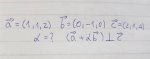 a⃗=(1,1,2) b⃗=(0,-1,0) c⃗=(2,1,4)
α=? (a⃗+αb⃗)⊥c⃗